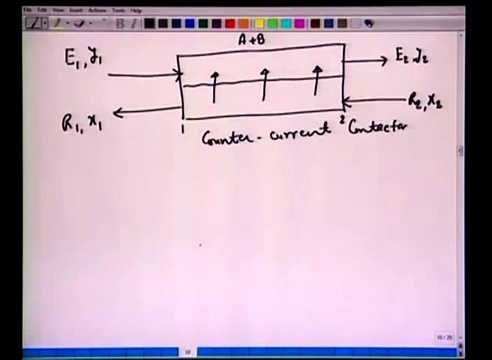 File Edit View Insert Actions Tools Help
A+B
E₁, y₁
E₂, y₂
R₁, x₁
R₂, x₂
1
2
Counter-current Contactor
18